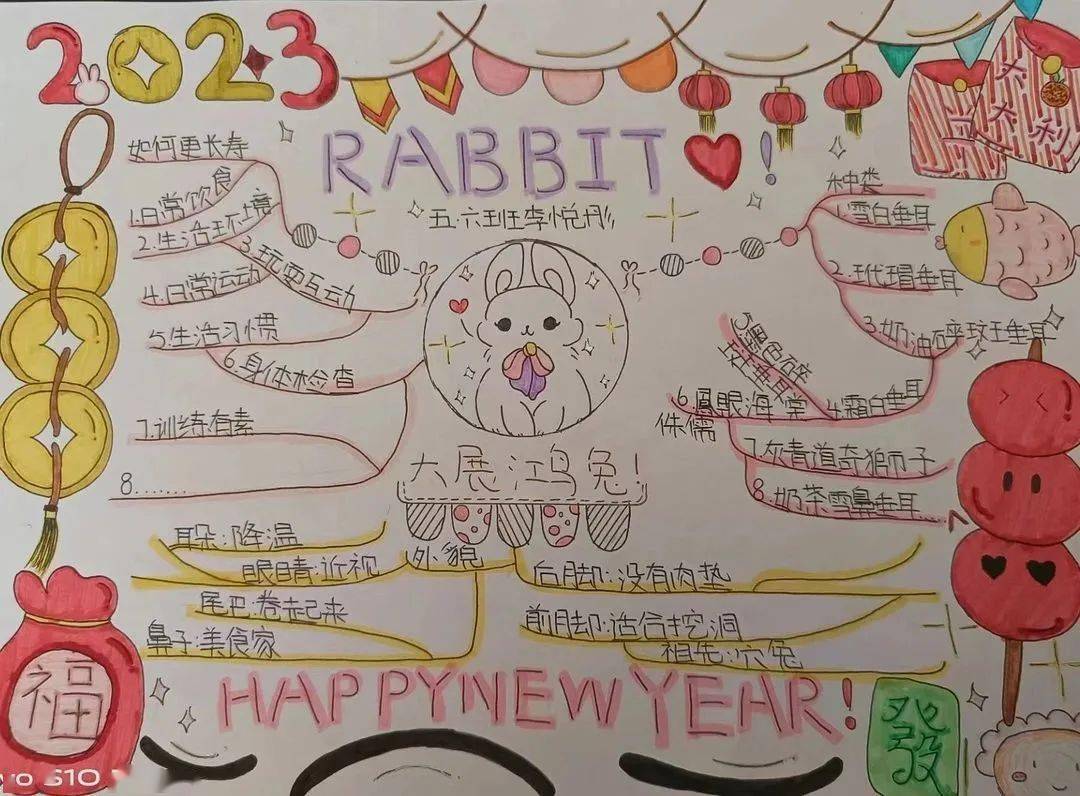 2023
大吉
大利
RABBIT!
五.六班李悦彤
如何更长寿
1.日常饮食
2.生活环境
3.玩耍互动
4.日常运动
5.生活习惯
6.身体检查
7.训练有素
8.......
种类
1.雪白垂耳
2.玳瑁垂耳
3.奶油碎斑垂耳
4.霜白垂耳
6.鳳眼海棠
侏儒
7.灰青道奇獅子
8.奶茶雪鼻垂耳
大展鸿兔!
外貌
耳朵:降温
眼睛:近视
尾巴:卷起来
鼻子:美食家
后脚:没有肉垫
前脚:适合挖洞
祖先:穴兔
HAPPYNEWYEAR!
福
發
vo S10